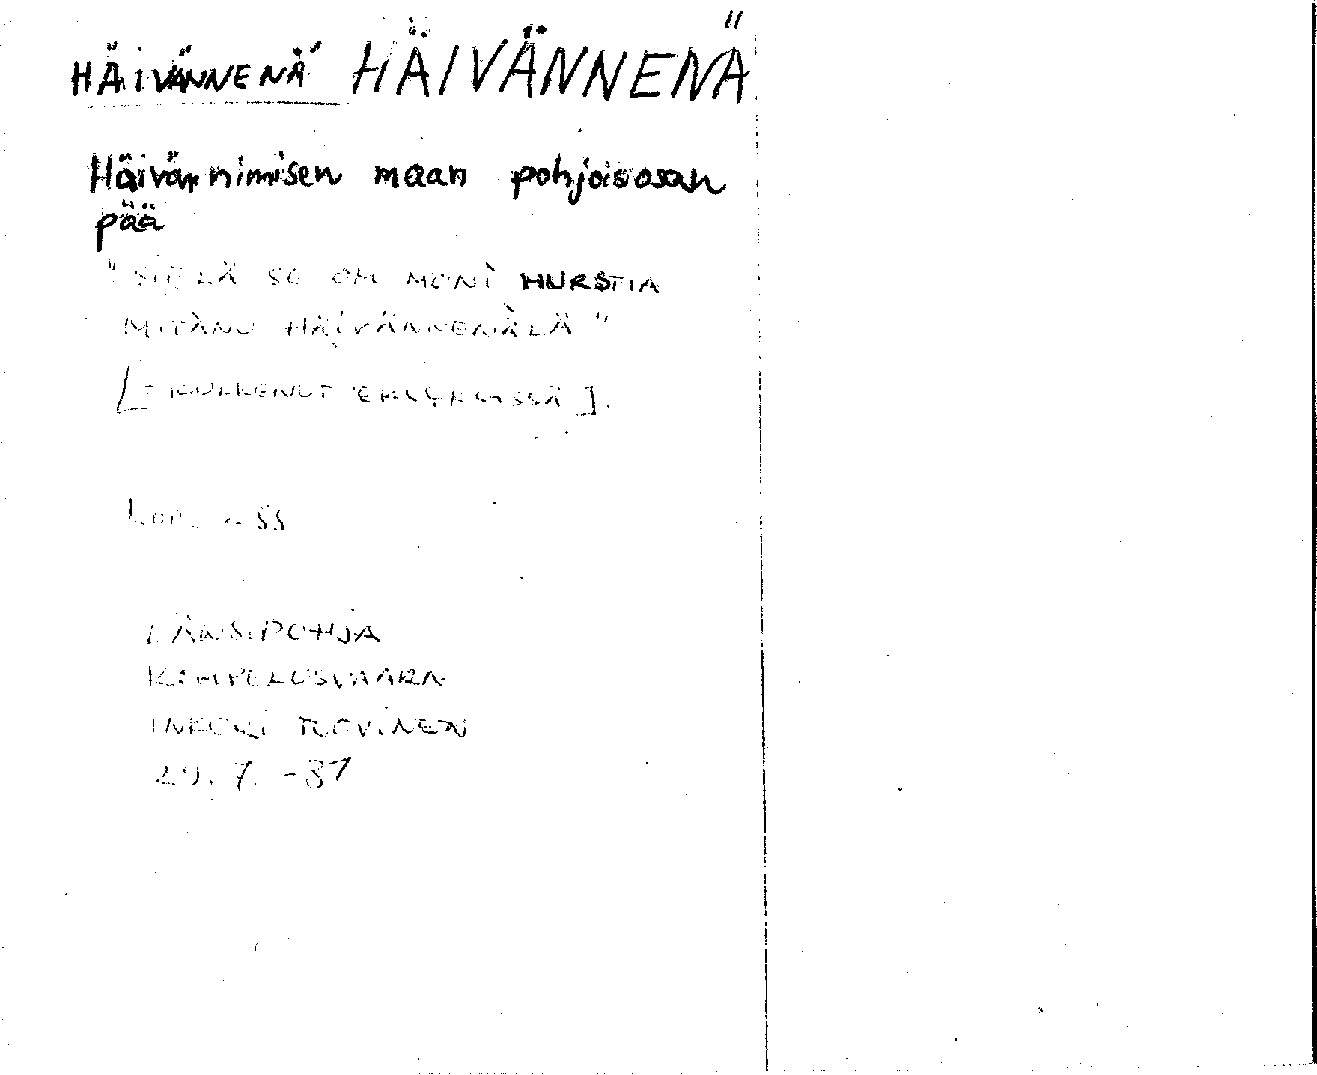 HÄIVÄNNENÄ HÄIVÄNNENÄ
Häivän nimisen maan pohjoisosan
pää
"SIELÄ SE OM MONI HURSTIA
MITÄNU HÄIVÄNNENÄLÄ"
[= KULKENUT EKSYKSISSÄ].
ss
LÄNSIPOHJA
KOMPELUSVAARA
INKERI TUOVINEN
29.7. -81